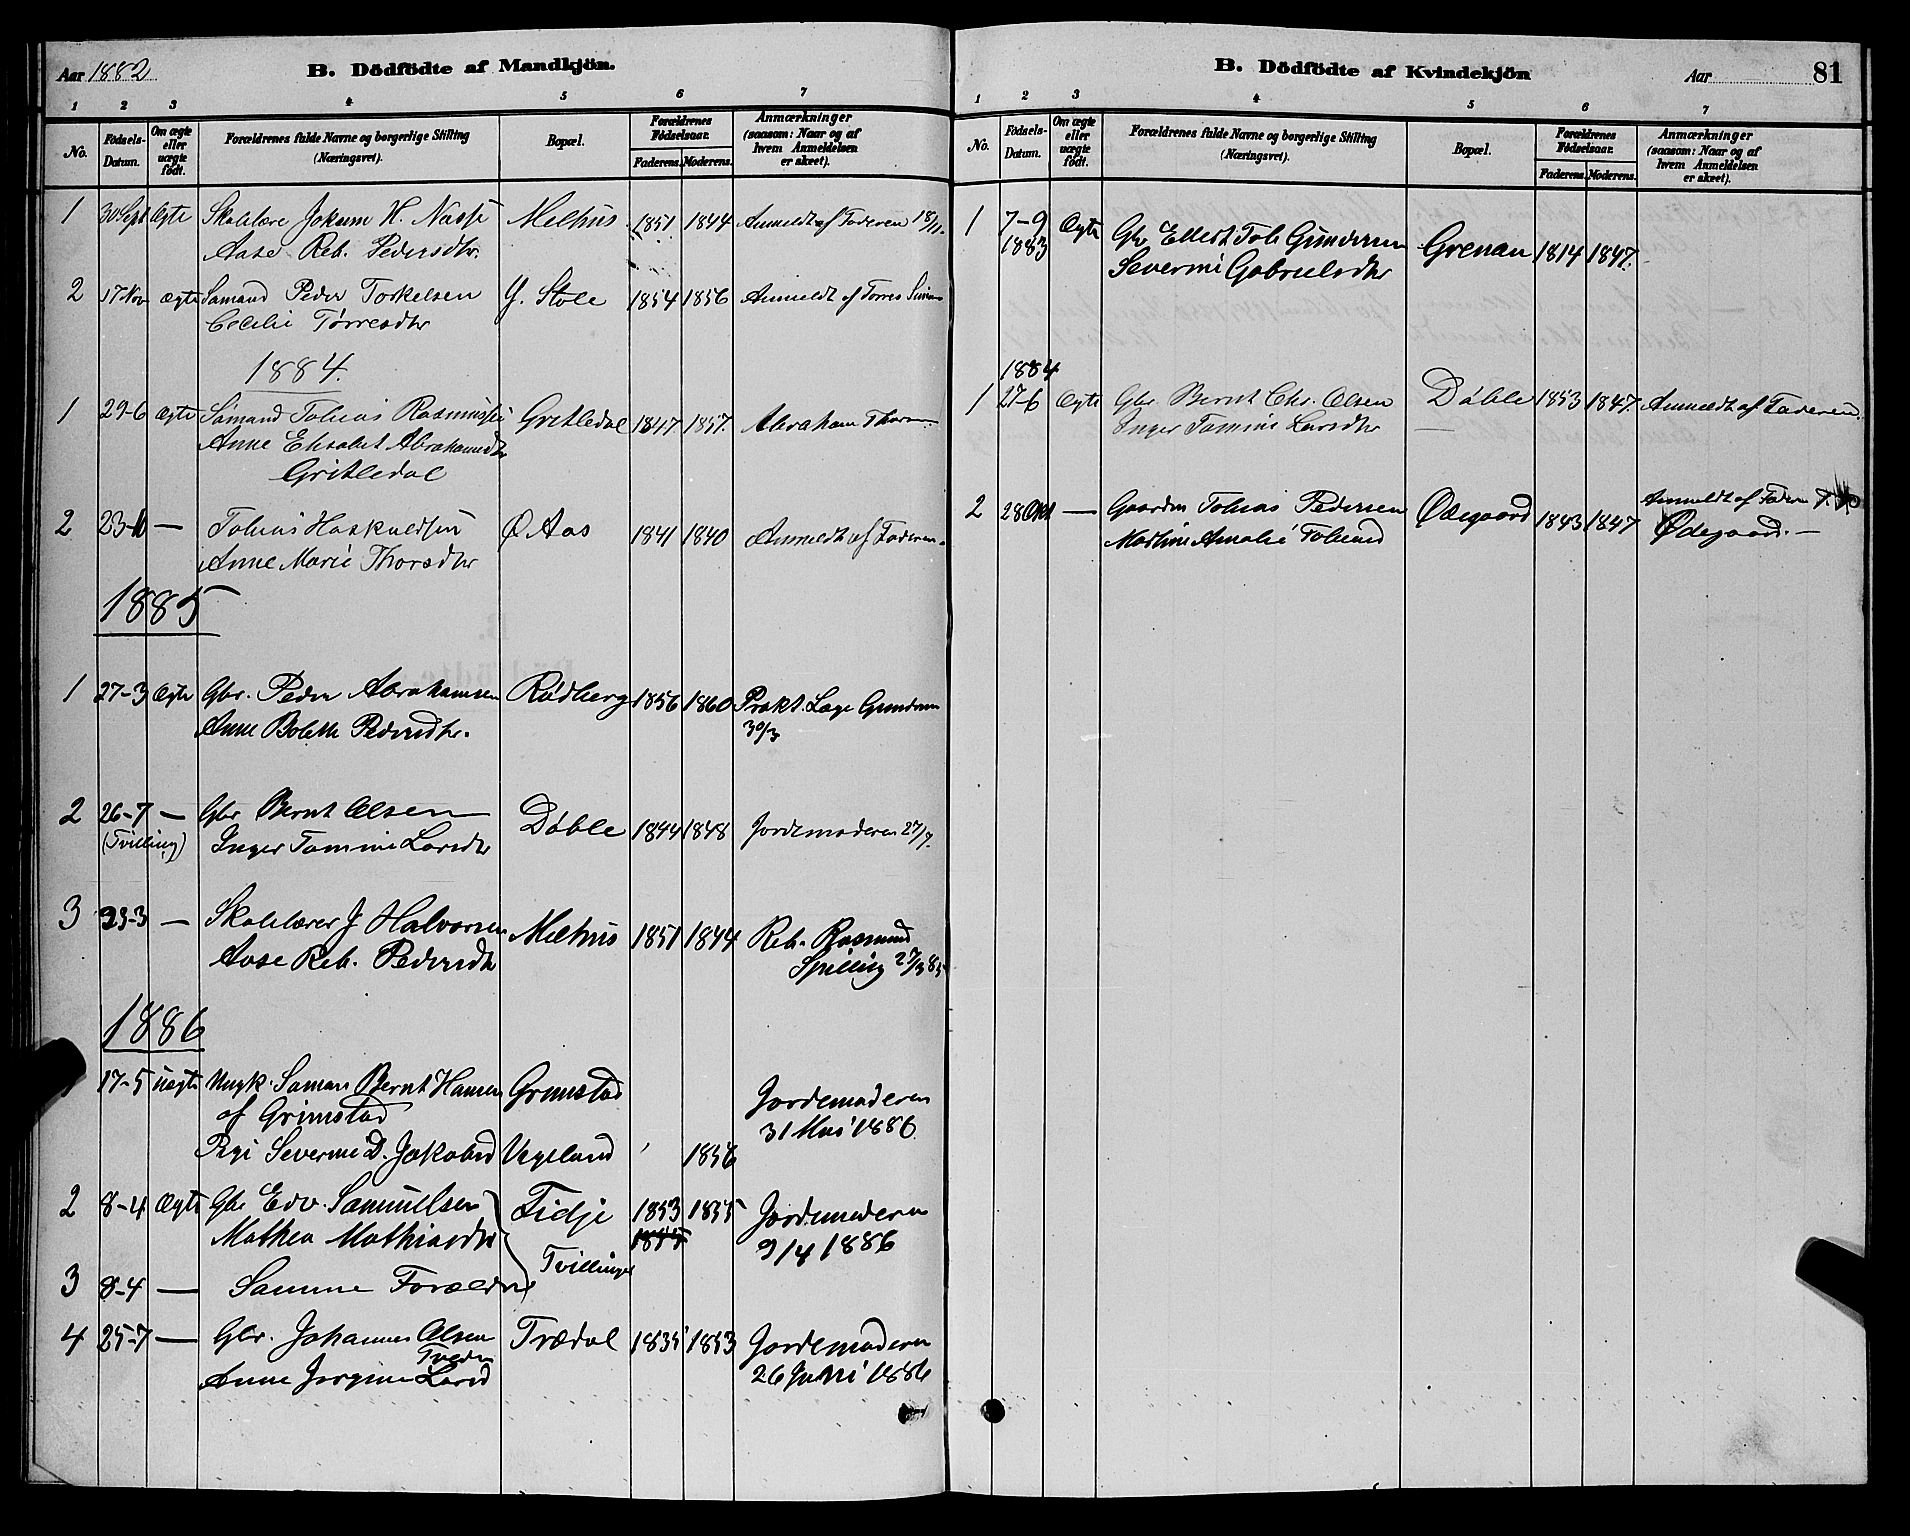 Aar 1882
B. Dödfödte af Mandkjön.
1 2 3 4 5 6 7
No. Födsels-Datum. Om ægte eller uægte födt. Forældrenes fulde Navne og borgerlige Stilling (Næringsvei). Bopæl. Forældrenes Födselsaar. Faderens. Moderens. Anmærkninger (saasom: Naar og af hvem Anmeldelsen er skeet).
1 30 Sept Ægte Skolelære Jokum H. Melhus 1851 1844 Anmeldt af Faderen 18/11
Aase Reb. Pedersdtr.
2 17 Nov ægte Sømand Peder Torkelsen Y. Støle 1854 1856 Anmeldt af Torres
Cecilie Tørresdtr
1884.
1 29-6 Ægte Sømand Tobias Rasmussen Gritledal 1847 1857. Abraham
Anne Elisabet Abrahamsdtr
Gritledal
2 23- — Tobias Haskuldsen Ø. Aas 1841 1840 Anmeldt af Faderen.
Anne Marie Thorsdtr
1885
1 27-3 Ægte Gbr. Peder Abrahamsen Rødberg 1856 1860 Prakt. Læge Gundersen
Anne Bolette Pedersdtr. 30/3
2 26-7 — Gbr Bernt Olsen Døble 1844 1848 Jordemoderen 27/7.
(Tvilling) Inger Tomine Larsdtr
3 23-3 — Skolelærer J Halvorsen Melhus 1851 1844 Reb. Rasmusd
Aase Reb. Pedersdtr Spilling 27/3 85
1886
17-5 uægte Ungk. Søman Bernt Hansen Grimstad Jordemoderen
af Grimstad 31 Mai 1886.
Pige Severine D. Jakobsd Vageland 1856
2 8-4 Ægte Gbr Edv. Samuelsen Fidje 1853 1855 Jordemoderen
Mathea Mathiasdtr 1855 9/4 1886
Tvillinger
3 8-4 — Samme Forældre
4 25-7 — Gbr. Johannes Olsen Trædal 1835 1853 Jordemoderen
Anne Jorgine Larsd 26 Juni 1886
B. Dödfödte af Kvindekjön
Aar 81
1 2 3 4 5 6 7
No. Födsels-Datum. Om ægte eller uægte födt. Forældrenes fulde Navne og borgerlige Stilling (Næringsvei). Bopæl. Forældrenes Födselsaar. Faderens. Moderens. Anmærkninger (saasom: Naar og af hvem Anmeldelsen er skeet).
1 7-9 Ægte Gbr Ellert Tob Gundersen Grenan 1814 1847.
1883 Severine Gabrielsdtr
1884
1 27-6 Ægte Gbr. Bernt Chr. Olsen Døble 1853 1847. Anmeldt af Faderen.
Inger Tomine Larsdtr —
2 28 Okt — Gaardm Tobias Pedersen Ødegaard 1843 1847 Anmeldt af Faderen
Martine Amalie Tobiasd Ødegaard. —